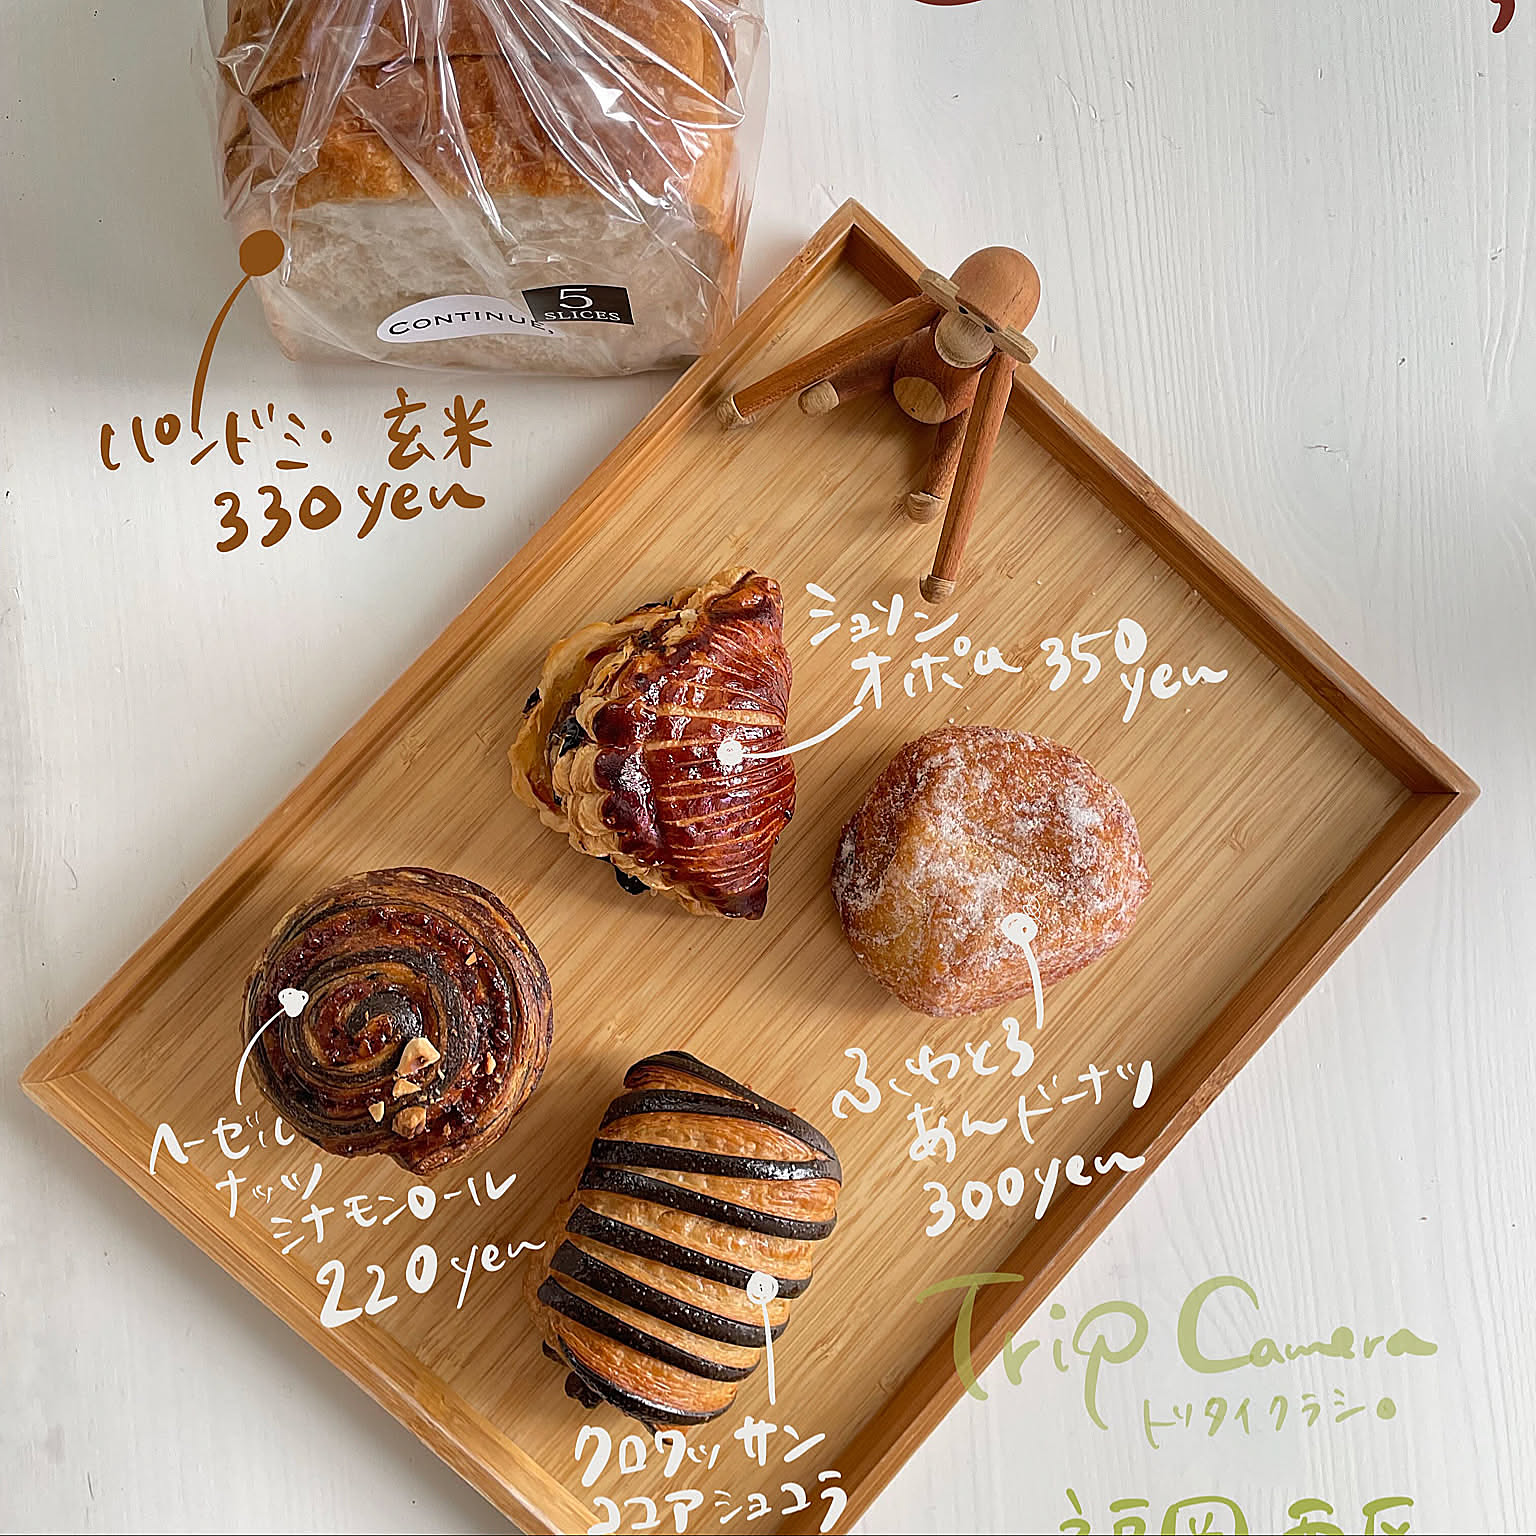 CONTINUE,
5
SLICES
パンドミ 玄米
330yen
シュソン
オポム 350
yen
ふわとろ
あんドーナツ
300yen
ヘーゼル
ナッツ
シナモンロール
220yen
クロワッサン
ココアショコラ
Trip Camera
トリタイクラシ。
福岡 西区